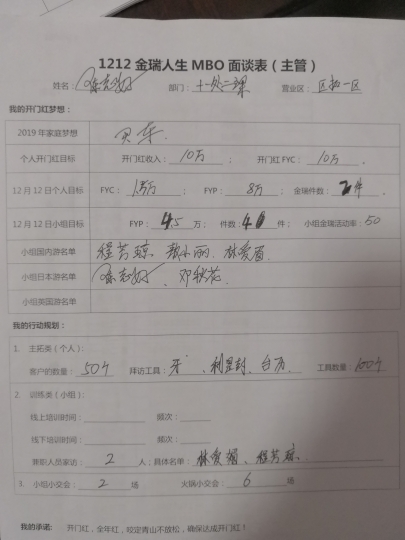 1212 金瑞人生 MBO 面谈表（主管）
姓名： 部门：十一处二课 营业区：区拓一区
我的开门红梦想：
2019 年家庭梦想 买车.
个人开门红目标 开门红收入：10万； 开门红 FYC：10万。
12 月 12 日个人目标 FYC： FYP：8万； 金瑞件数：件.
12 月 12 日小组目标 FYP：4.5 万； 件数：40 件； 小组金瑞活动率：50
小组国内游名单 程芳琼. 小丽. 林爱眉.
小组日本游名单 、邓秋花
小组英国游名单
我的行动规划：
1. 主拓类（个人）：
客户拍数量：50个 拜访工具：牙、利是封、台历. 工具数量：100个
2. 训练类（小组）：
线上培训时间： 频次：
线下培训时间： 频次：
兼职人员家访：2 人；具体名单：林爱媚、程芳琼.
3. 小组小交会：2 场 火锅小交会：6 场
我的承诺： 开门红，全年红，咬定青山不放松，确保达成开门红！